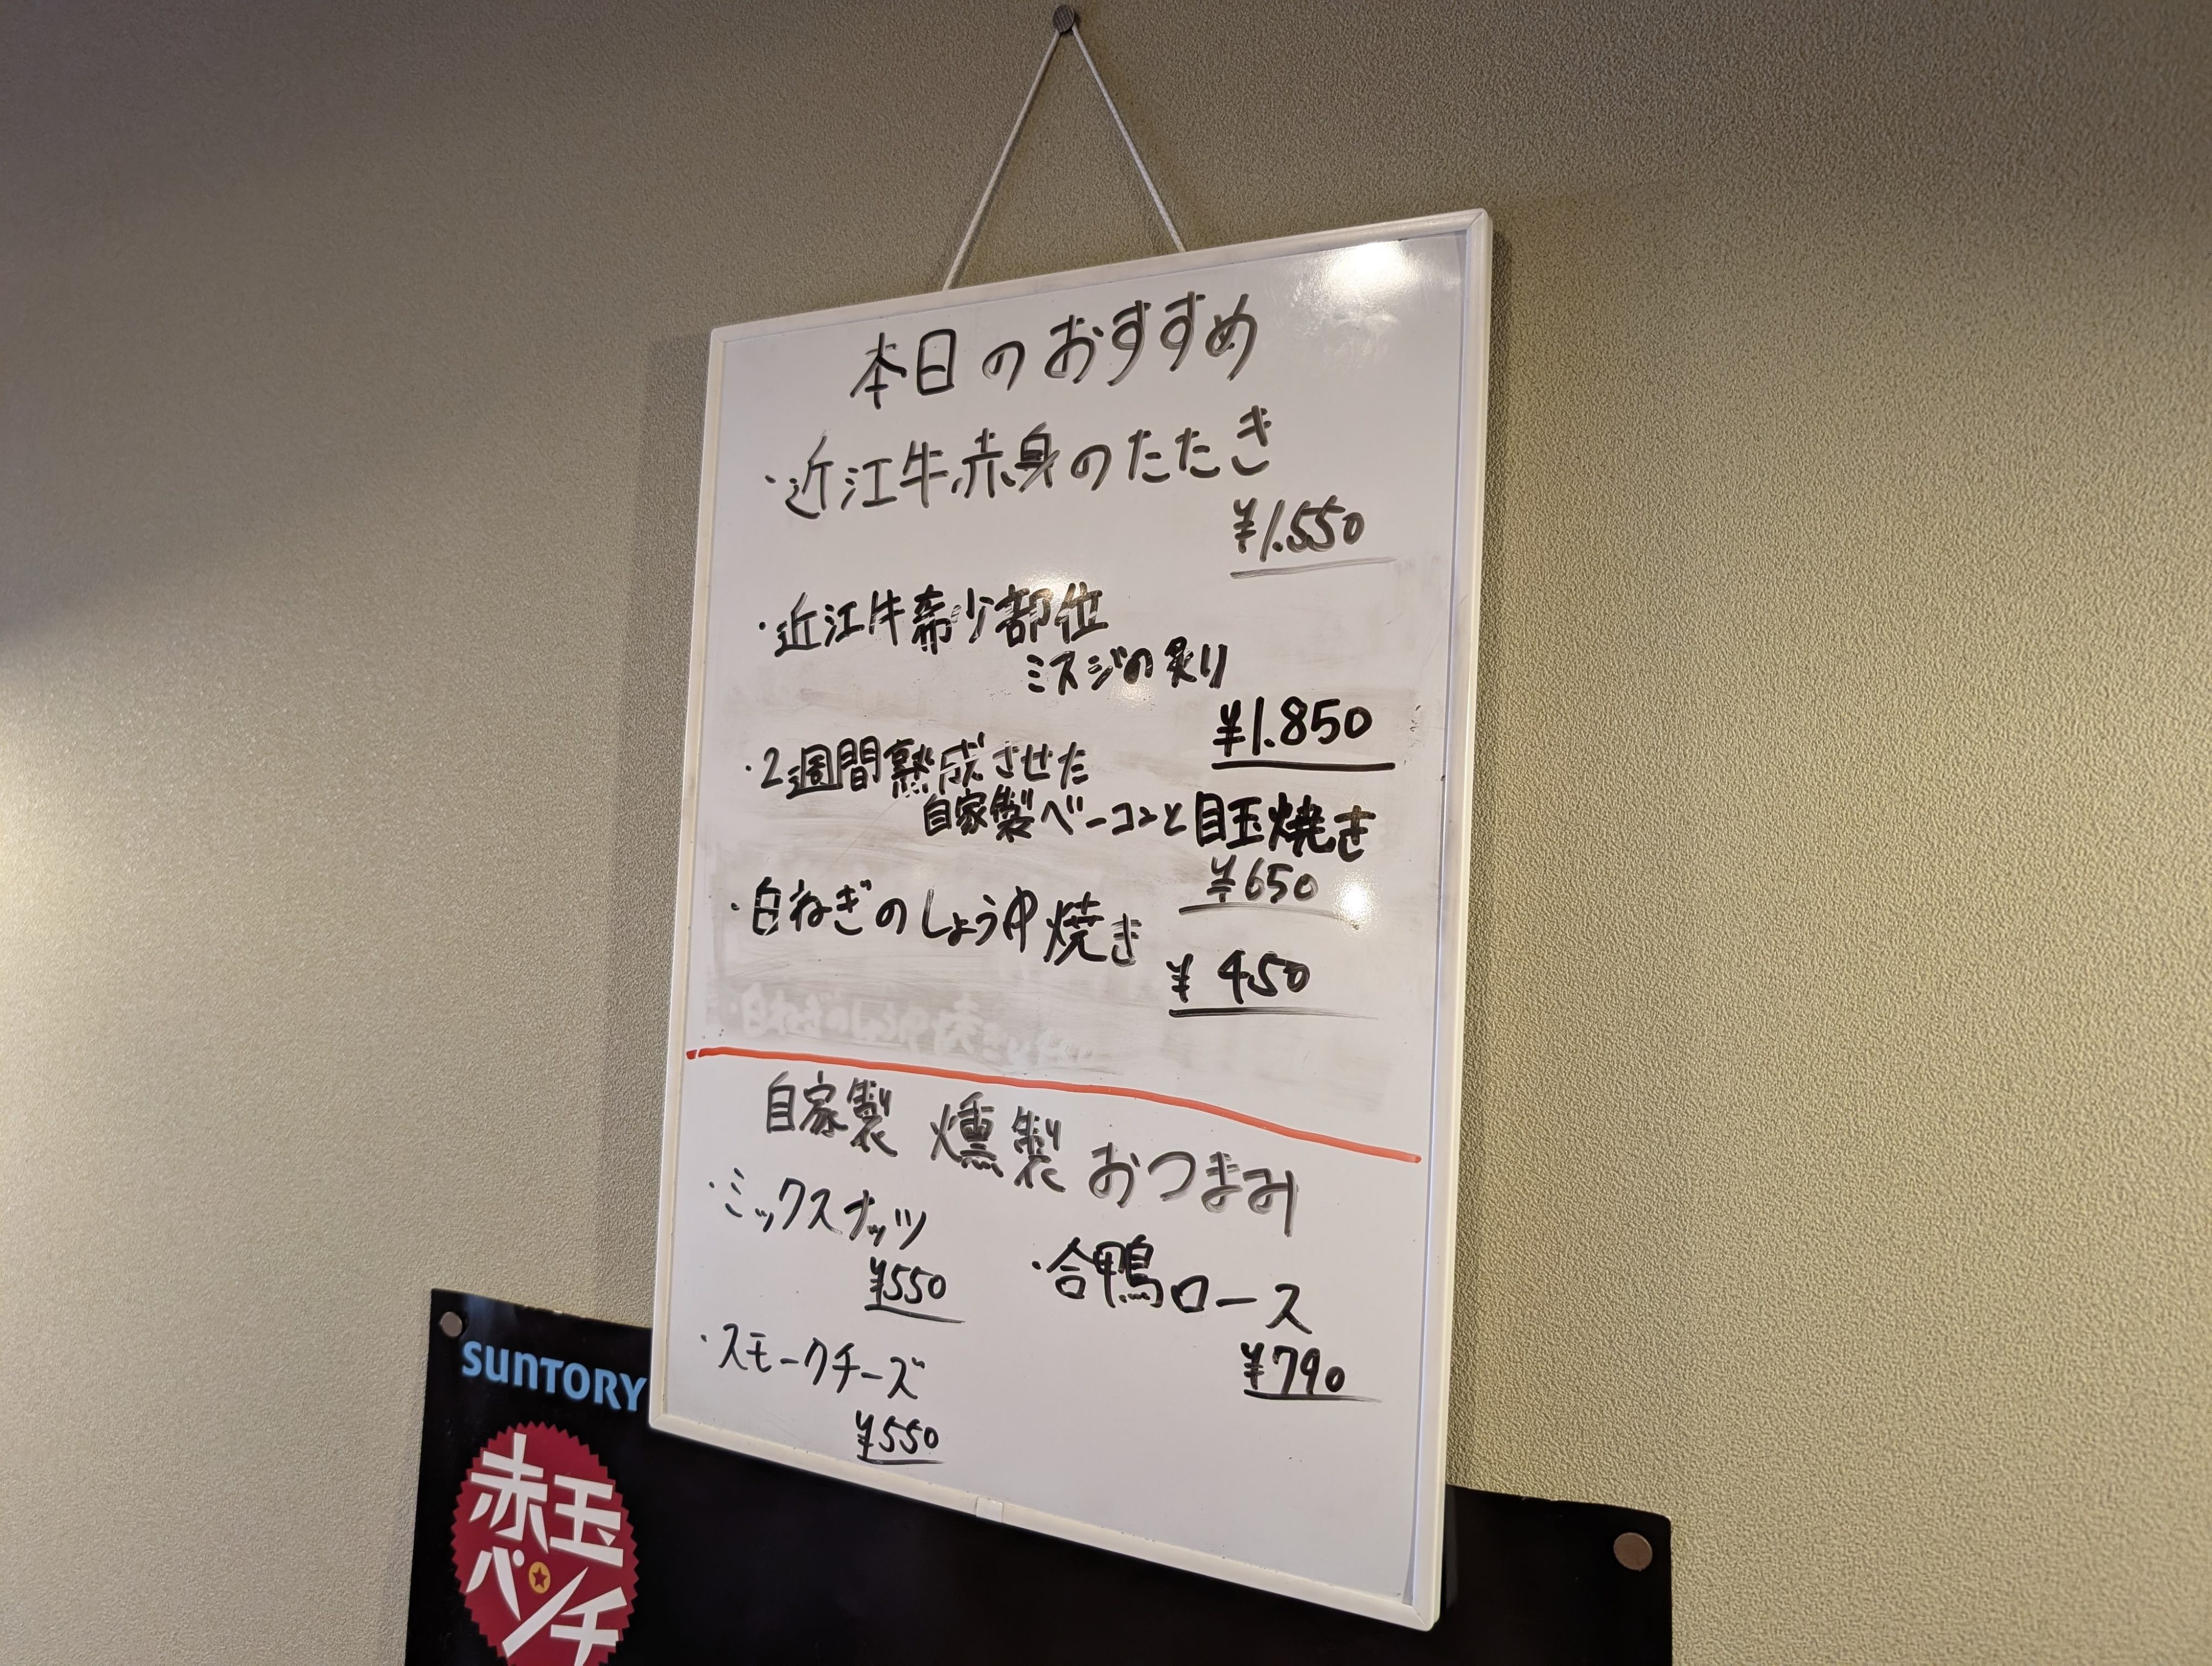 本日のおすすめ
・近江牛赤身のたたき
¥1.550
・近江牛希少部位
ミスジの炙り
¥1.850
・2週間熟成させた
自家製ベーコンと目玉焼き
¥650
・白ねぎのしょうゆ焼き
¥450
自家製 燻製おつまみ
・ミックスナッツ
¥550
・合鴨ロース
¥790
・スモークチーズ
¥550
SUNTORY
赤玉
パンチ